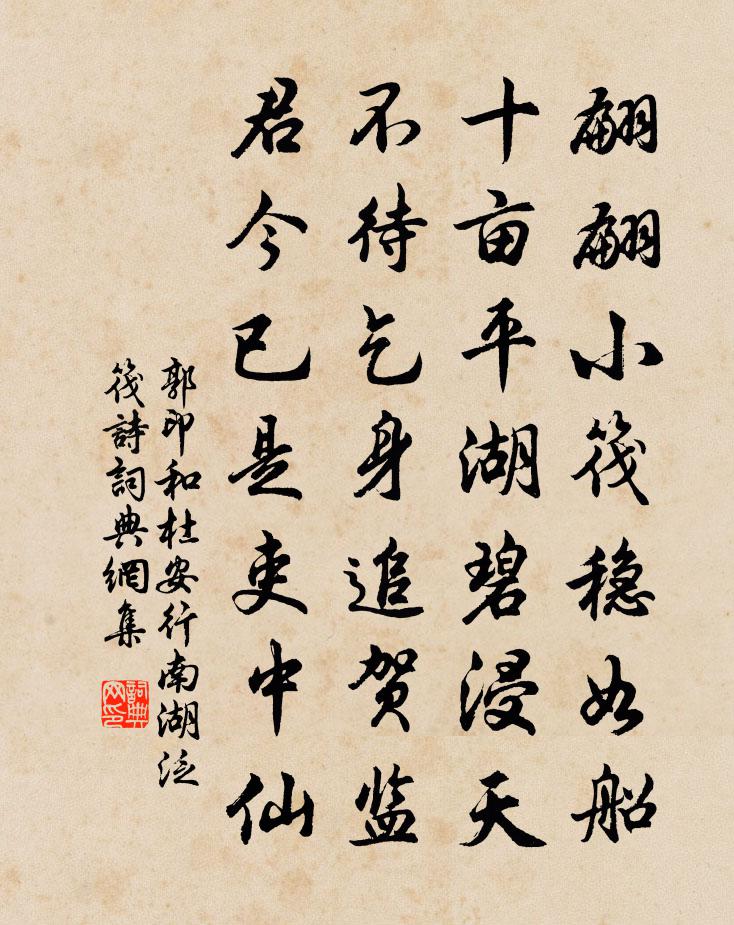 翩翩小筏稳如船
十亩平湖碧浸天
不待乞身追贺监
君今已是吏中仙
郭印和杜安行南湖泛
筏詩詞典網集
詞典
网印